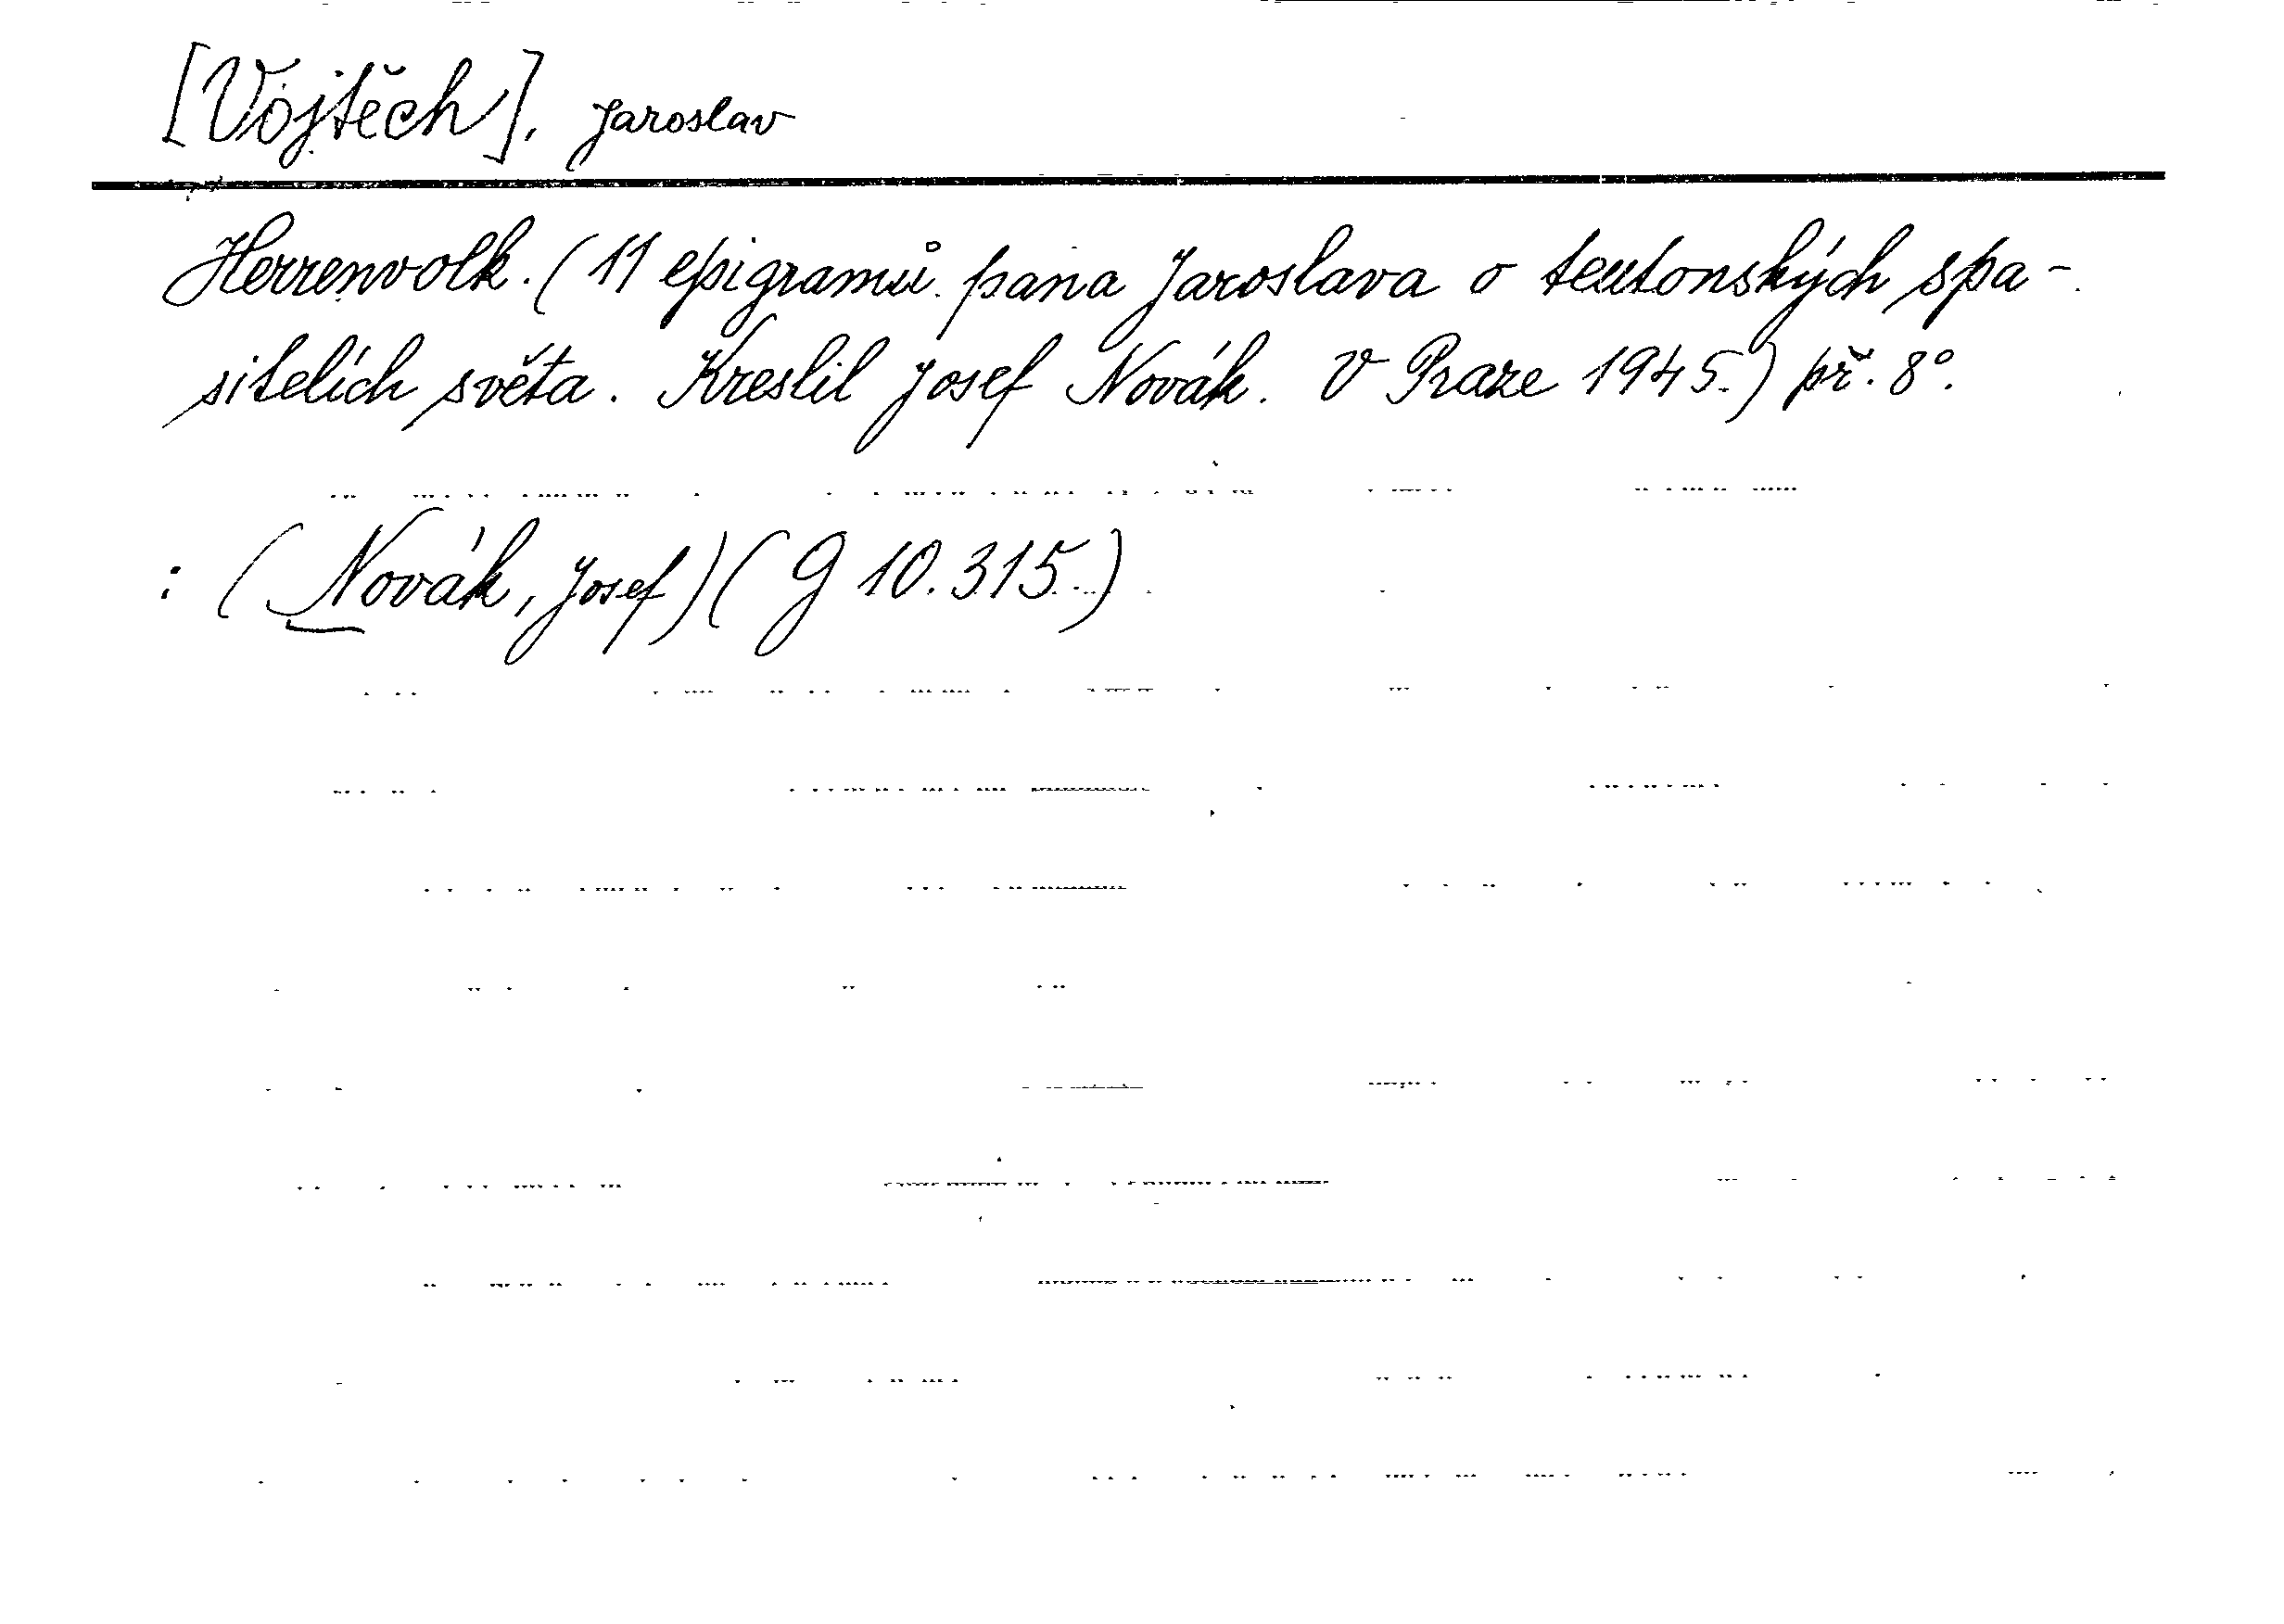 [Vojtěch], Jaroslav
Herrenvolk. (11 epigramů pana Jaroslava o teutonských spa-
sitelích světa. Kreslil Josef Novák. V Praze 1945.) př. 8°.
: (Novák, Josef) (G 10.315.)